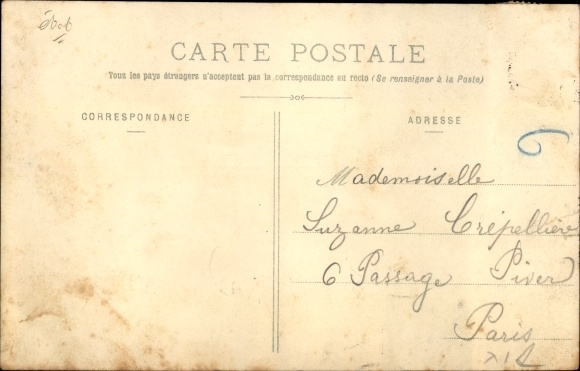 CARTE POSTALE
Tous les pays étrangers n'acceptent pas la correspondance au recto (Se renseigner à la Poste)
CORRESPONDANCE
ADRESSE
6
Mademoiselle
Suzanne Crépellière
6 Passage Piver
Paris